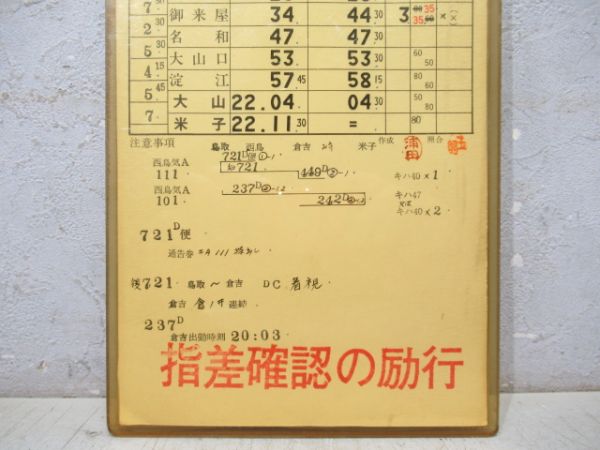 7 30
御来屋 34 44 30 3 35 35 ×(×)
2
名和 47 47 30
5 30
大山口 53 53 30 60 50
4 15
淀江 57 45 58 15 80 60
5 45
大山 22.04 04 30 80 50
7
米子 22.11 30 = 80
注意事項 鳥取 西鳥 倉吉 米子 作成 照合
721D便
西鳥気A 721
111 449D キハ40×1
西鳥気A 237D キハ47
101 242D キハ40×2
721D便
通告券 111
後721 鳥取～倉吉 DC 着視
倉吉 倉 連結
237D
倉吉出勤時刻 20:03
指差確認の励行